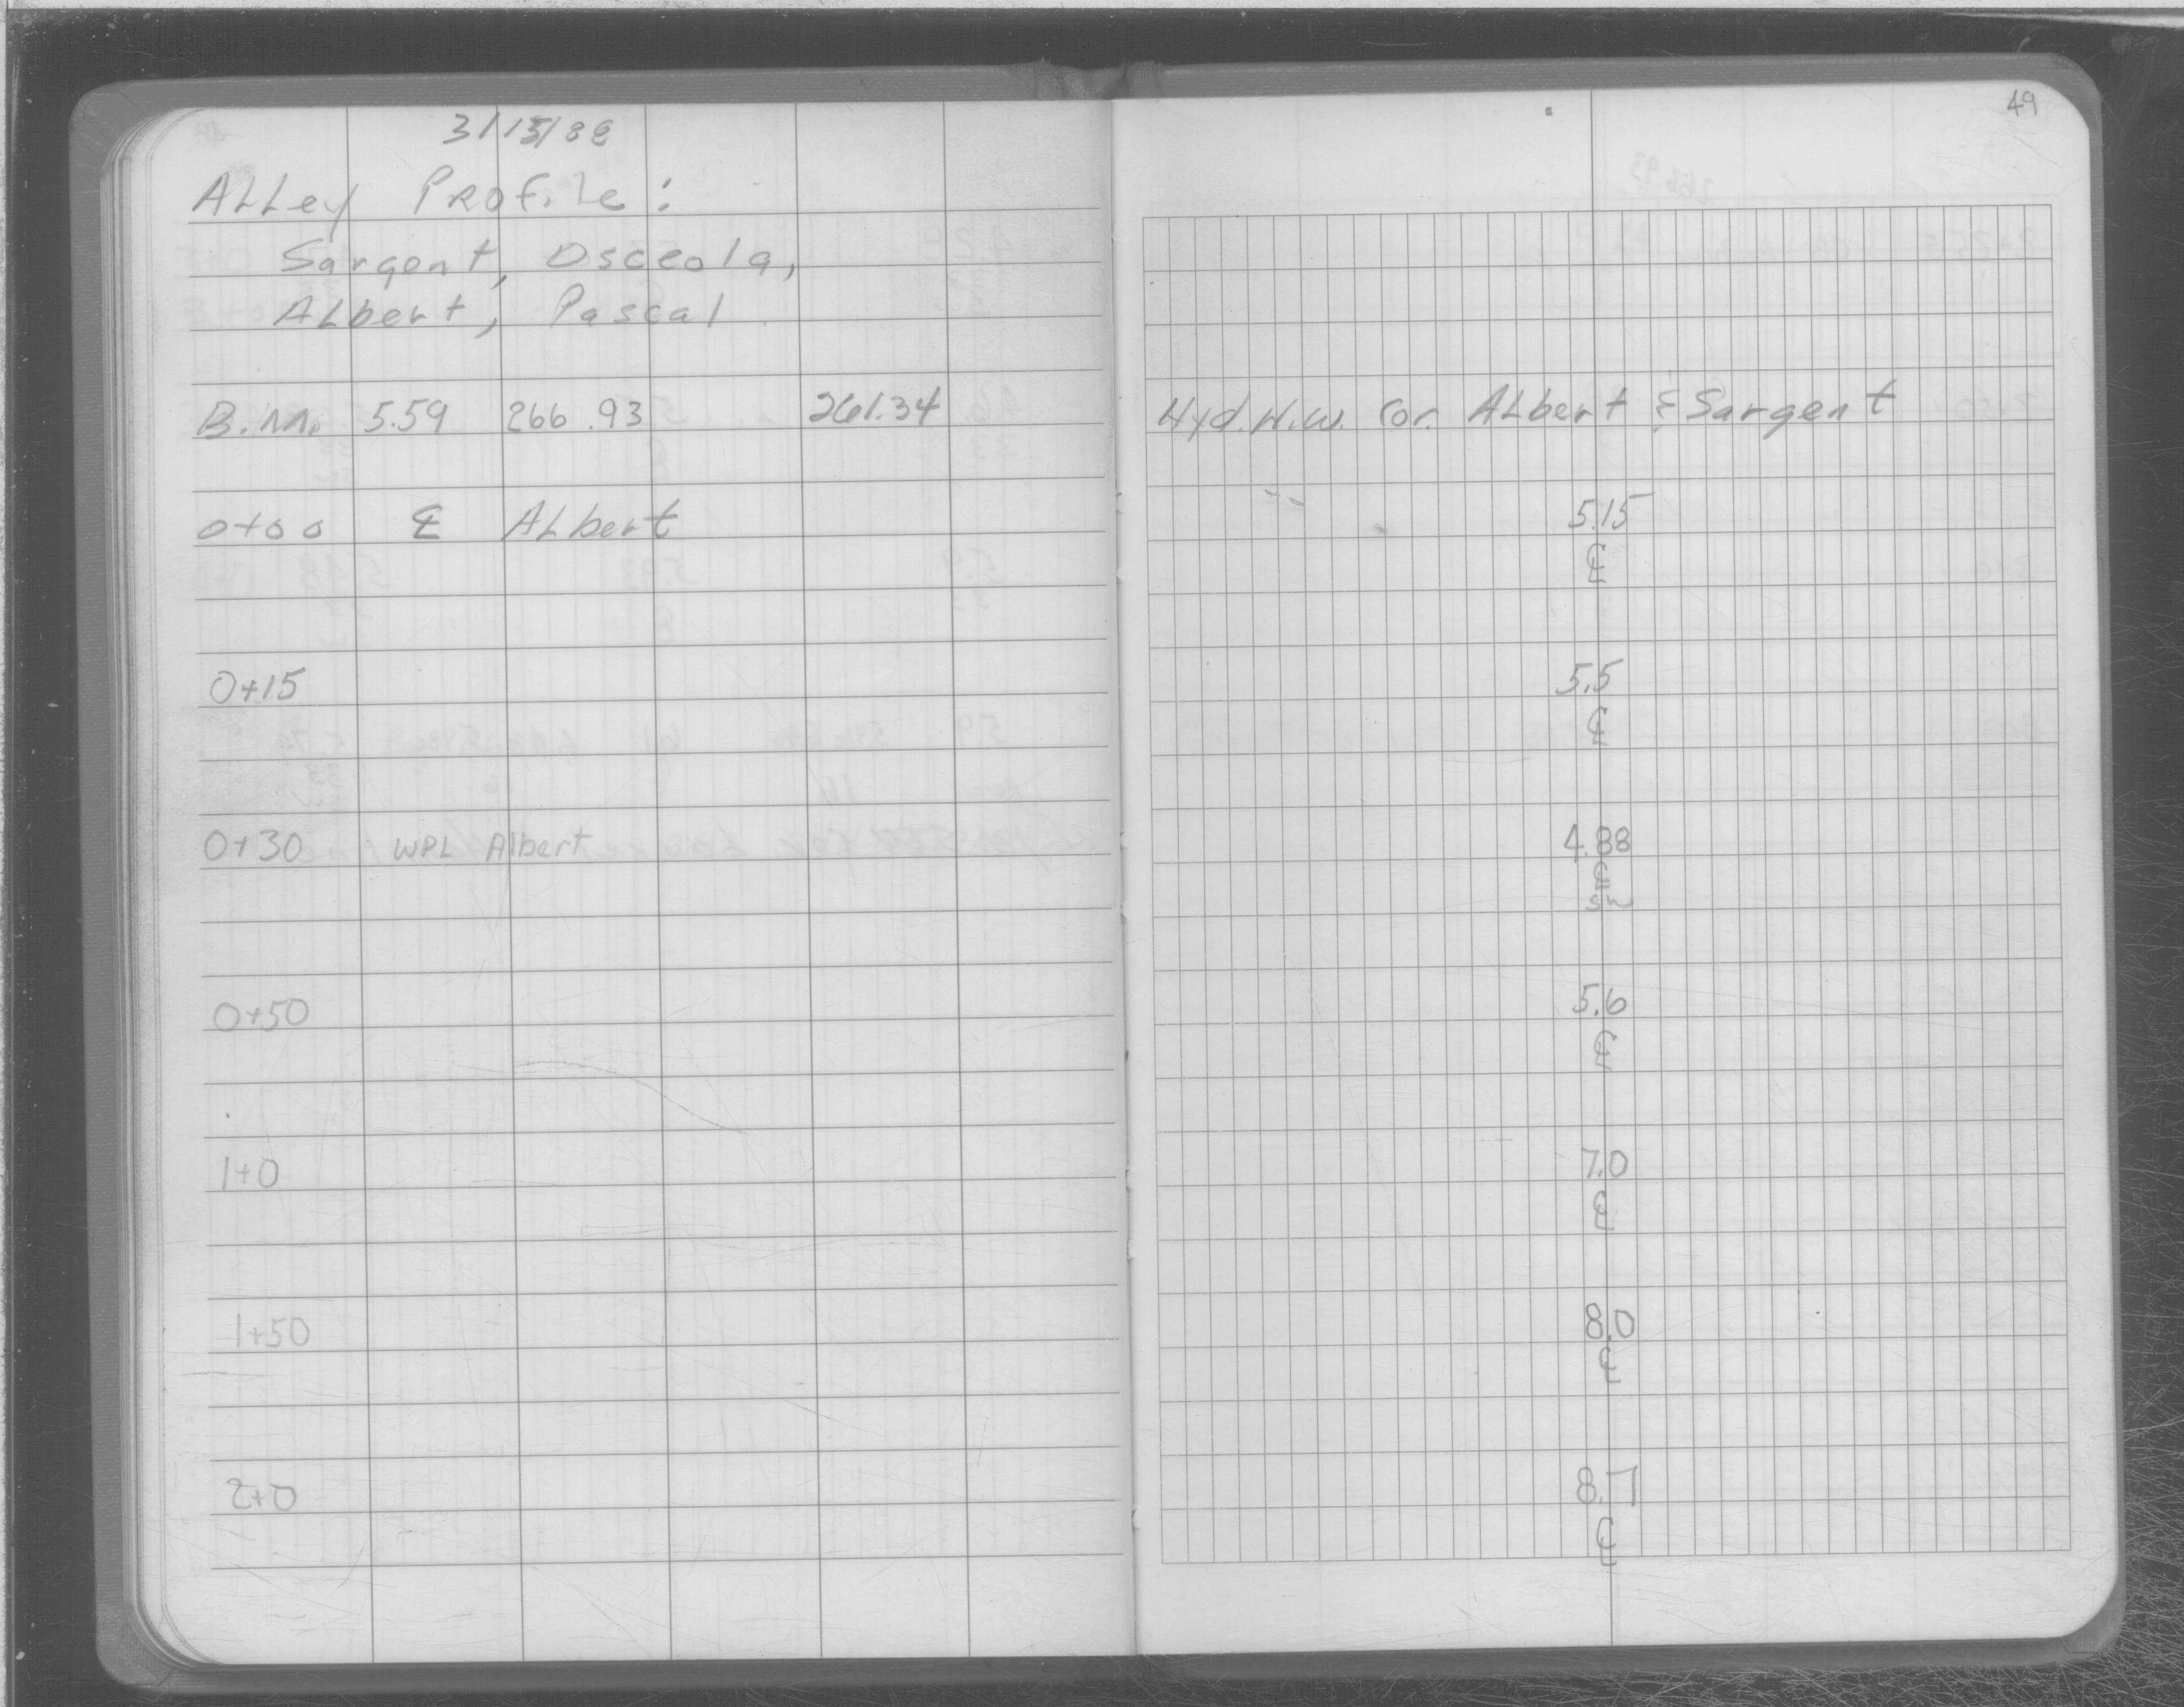 49
3/15/88
Alley Profile:
Sargent, Osceola,
Albert, Pascal
B.M. 5.59 266.93 261.34 Hyd. N.W. Cor. Albert & Sargent
0+00 ℄ Albert 5.15
℄
0+15 5.5
℄
0+30 WPL Albert 4.88
℄
SW
0+50 5.6
℄
1+0 7.0
℄
1+50 8.0
℄
2+0 8.7
℄